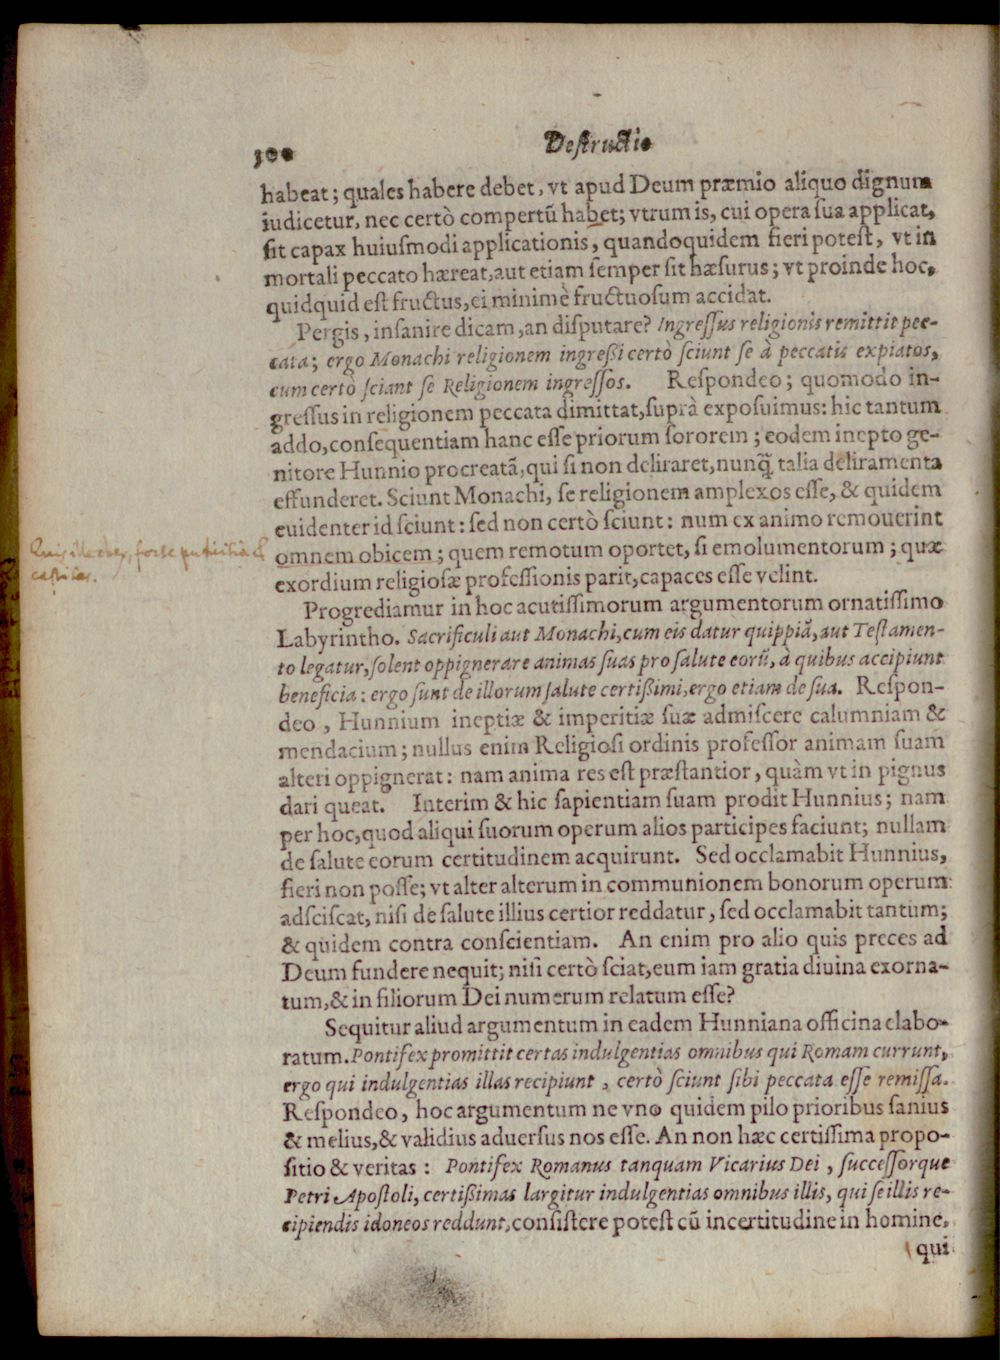 300 Destructio
habeat; quales habere debet, vt apud Deum præmio aliquo dignum
iudicetur, nec certò compertũ habet; vtrum is, cui opera sua applicat,
sit capax huiusmodi applicationis, quandoquidem fieri potest, vt in
mortali peccato hæreat, aut etiam semper sit hæsurus; vt proinde hoc,
quidquid est fructus, ei minimè fructuosum accidat.
Pergis, insanire dicam, an disputare? Ingressus religionis remittit pec-
cata; ergo Monachi religionem ingreßi certò sciunt se à peccatis expiatos,
cum certò sciant se Religionem ingressos. Respondeo; quomodo in-
gressus in religionem peccata dimittat, suprà exposuimus: hic tantum
addo, consequentiam hanc esse priorum sororem; eodem inepto ge-
nitore Hunnio procreatã, qui si non deliraret, nunq̃ talia deliramenta
effunderet. Sciunt Monachi, se religionem amplexos esse, & quidem
euidenter id sciunt: sed non certò sciunt: num ex animo remouerint
omnem obicem; quem remotum oportet, si emolumentorum; quæ
exordium religiosæ professionis parit, capaces esse velint.
Progrediamur in hoc acutissimorum argumentorum ornatissimo
Labyrintho. Sacrificuli aut Monachi, cum eis datur quippiã, aut Testamen-
to legatur, solent oppignerare animas suas pro salute eorũ, à quibus accipiunt
beneficia: ergo sunt de illorum salute certißimi, ergo etiam de sua. Respon-
deo, Hunnium ineptiæ & imperitiæ suæ admiscere calumniam &
mendacium; nullus enim Religiosi ordinis professor animam suam
alteri oppignerat: nam anima res est præstantior, quàm vt in pignus
dari queat. Interim & hic sapientiam suam prodit Hunnius; nam
per hoc, quod aliqui suorum operum alios participes faciunt; nullam
de salute eorum certitudinem acquirunt. Sed occlamabit Hunnius,
fieri non posse; vt alter alterum in communionem bonorum operum
adsciscat, nisi de salute illius certior reddatur, sed occlamabit tantum;
& quidem contra conscientiam. An enim pro alio quis preces ad
Deum fundere nequit; nisi certò sciat, eum iam gratia diuina exorna-
tum, & in filiorum Dei numerum relatum esse?
Sequitur aliud argumentum in eadem Hunniana officina elabo-
ratum. Pontifex promittit certas indulgentias omnibus qui Romam currunt,
ergo qui indulgentias illas recipiunt, certò sciunt sibi peccata esse remissa.
Respondeo, hoc argumentum ne vno quidem pilo prioribus sanius
& melius, & validius aduersus nos esse. An non hæc certissima propo-
sitio & veritas: Pontifex Romanus tanquam Vicarius Dei, successorque
Petri Apostoli, certißimas largitur indulgentias omnibus illis, qui se illis re-
cipiendis idoneos reddunt, consistere potest cũ incertitudine in homine,
qui